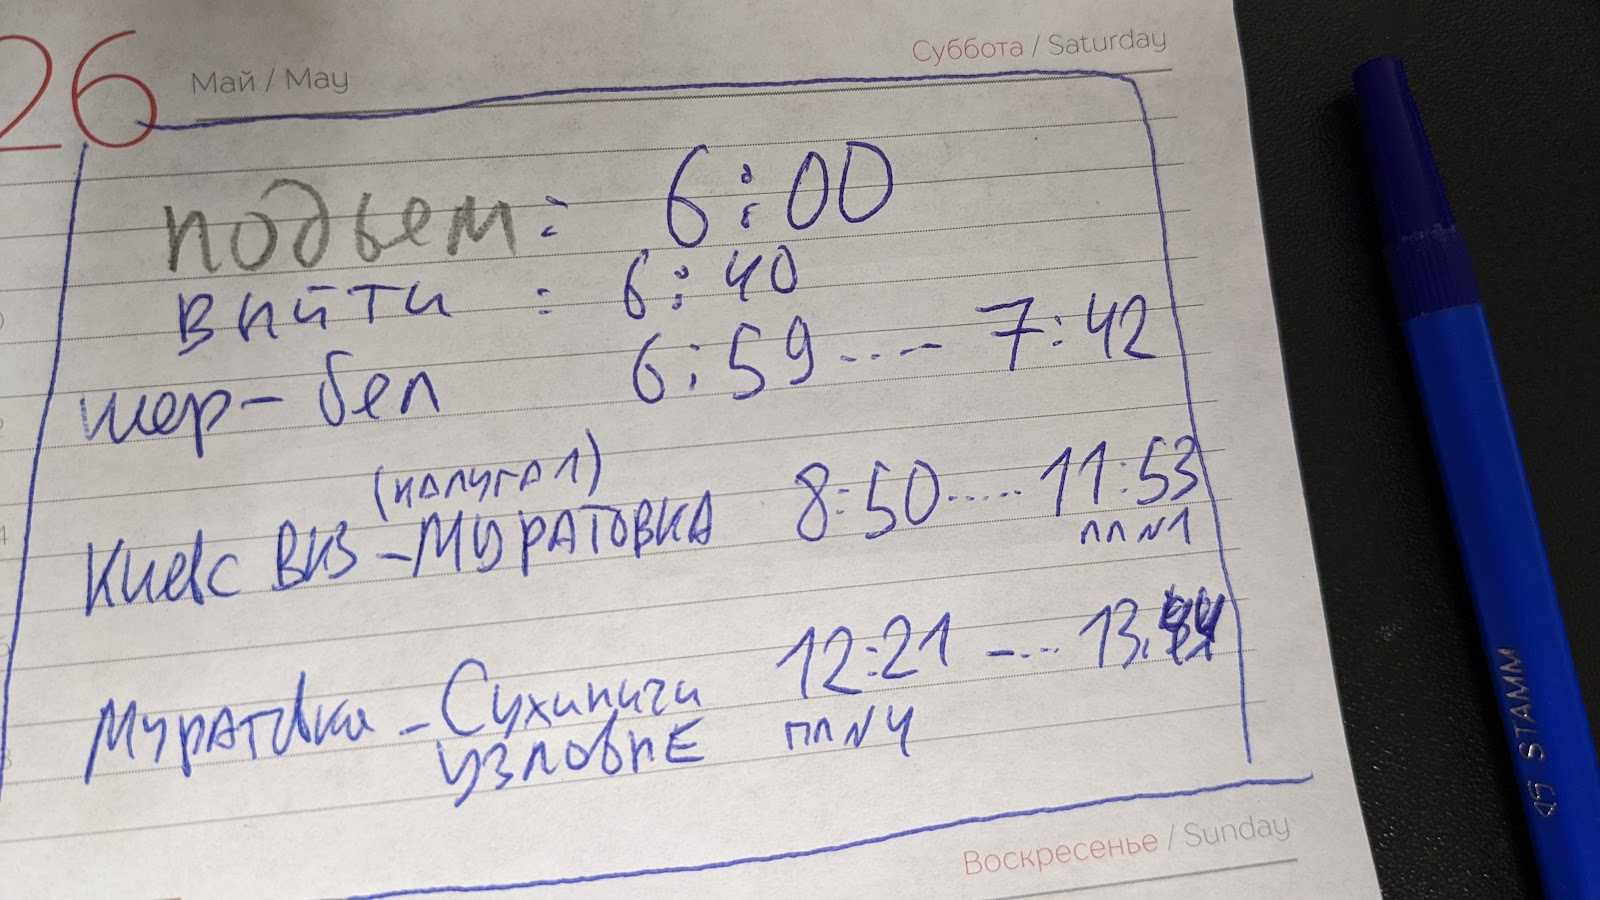 26 Май / May Суббота / Saturday
подьем: 6:00
выйти : 6:40
шер- бел 6:59 ...- 7:42
(калуга1)
Киевс ВКЗ -МУРАТОВКА 8:50 ..... 11:53
пл N1
Муратовка - Сухиничи 12:21 -... 13.
УЗЛОВЫЕ пл N4
Воскресенье / Sunday
STAMM